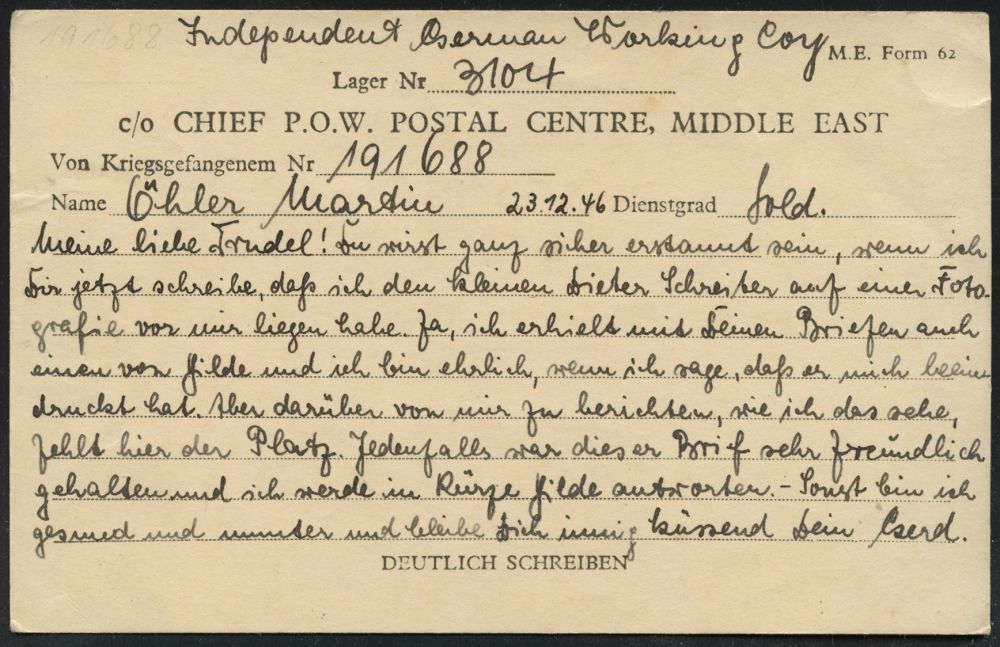 191688
Independent German Working Coy
M.E. Form 62
Lager Nr 3104
c/o CHIEF P.O.W. POSTAL CENTRE, MIDDLE EAST
Von Kriegsgefangenem Nr 191688
Name Öhler Martin 23.12.46 Dienstgrad Sold.
Meine liebe Trudel! Du wirst ganz sicher erstaunt sein, wenn ich
Dir jetzt schreibe, daß ich den kleinen Dieter Schreiter auf einer Foto-
grafie vor mir liegen habe. Ja, ich erhielt mit Deinen Briefen auch
einen von Hilde und ich bin ehrlich, wenn ich sage, daß er mich beein
druckt hat. Aber darüber von mir zu berichten, wie ich das sehe,
fehlt hier der Platz. Jedenfalls war dieser Brief sehr freundlich
gehalten und ich werde in Kürze Hilde antworten. - Sonst bin ich
gesund und munter und bleibe Dich innig küssend Dein Gerd.
DEUTLICH SCHREIBEN